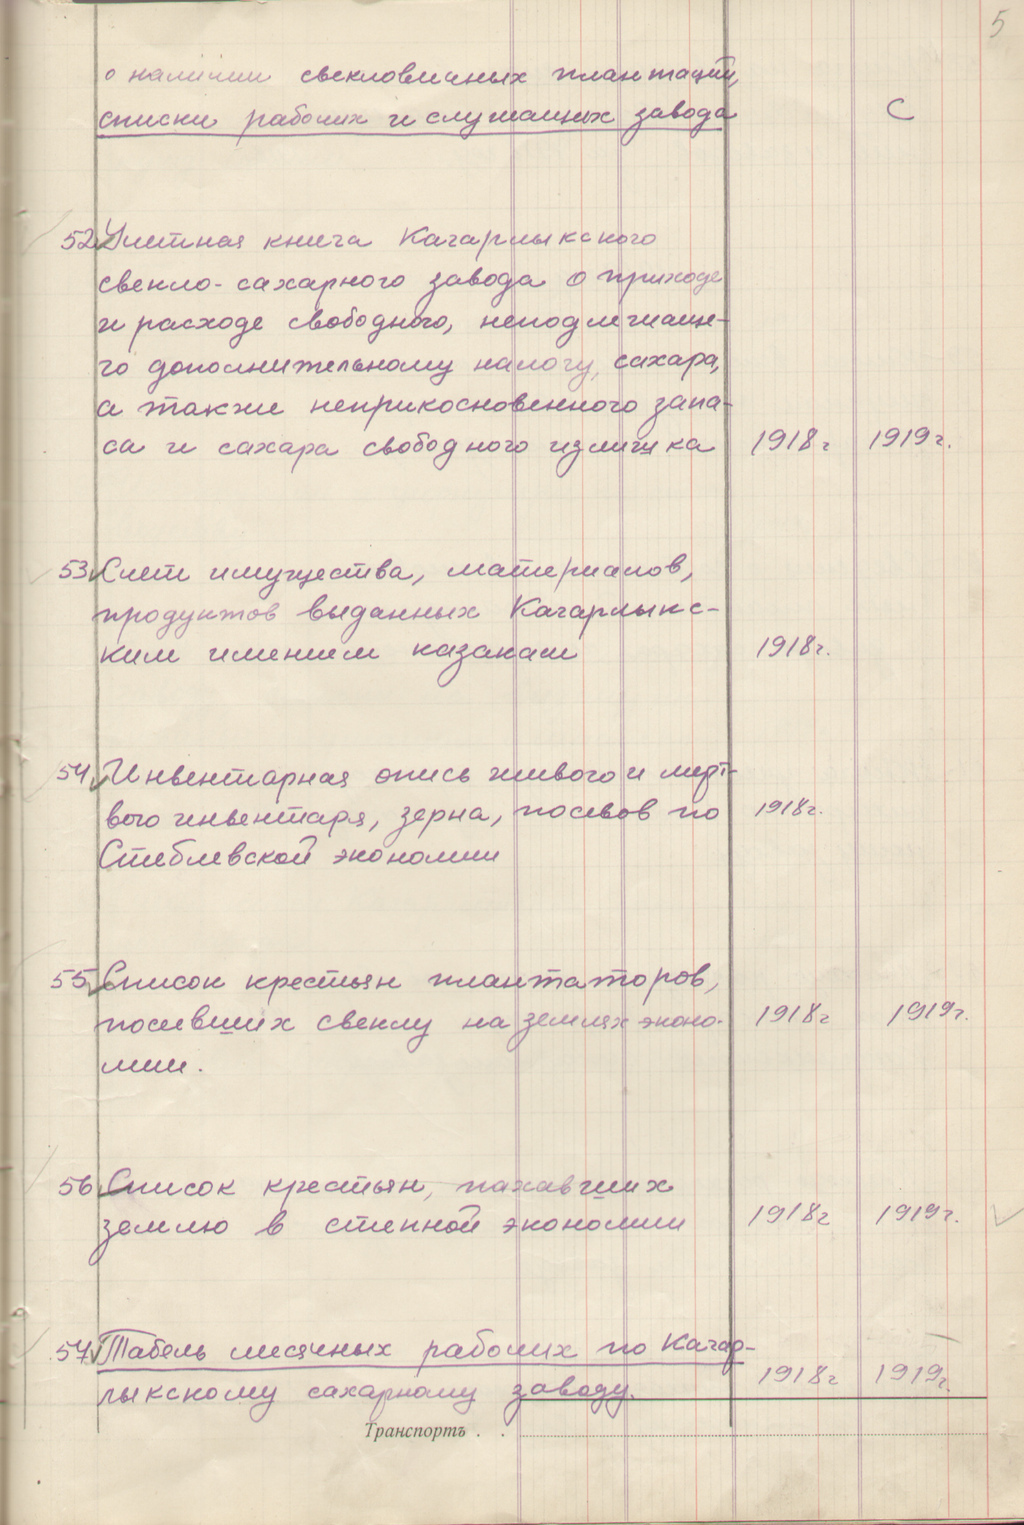 5
о наличии свекловичных плантаций,
списки рабочих и служащих завода С
52 Учетная книга Кагарлыкского
свекло-сахарного завода о приходе
и расходе свободного, неподлежаще-
го дополнительному налогу, сахара,
а также неприкосновенного запа-
са и сахара свободного излишка 1918г 1919г.
53 Счет имущества, материалов,
продуктов выданных Кагарлыкс-
ким имением казакам 1918г.
54 Инвентарная опись живого и мерт-
вого инвентаря, зерна, посевов по 1918г.
Стеблевской экономии
55 Список крестьян плантаторов,
посевших свеклу на землях эконо- 1918г 1919г.
мии.
56 Список крестьян, пахавших
землю в степной экономии 1918г 1919г.
57 Табель месячных рабочих по Кагар-
лыкскому сахарному заводу. 1918г 1919г.
Транспортъ . .